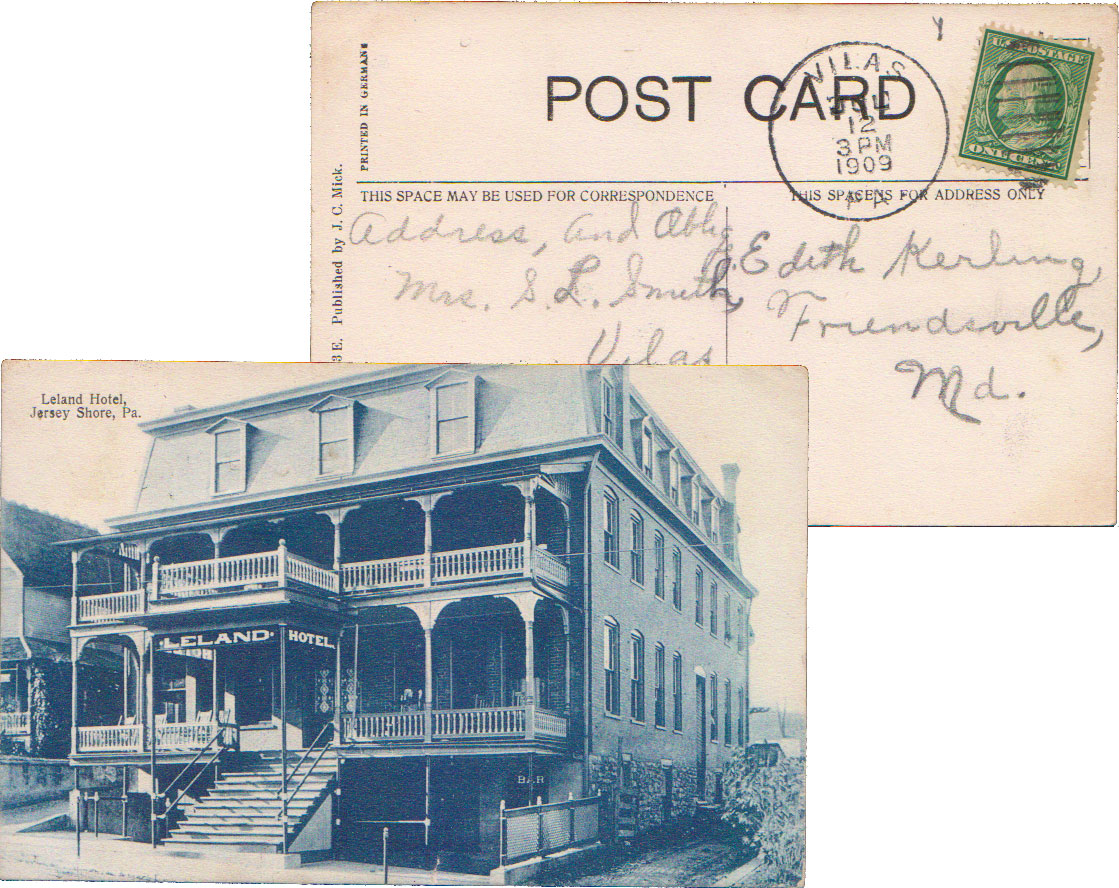 POST CARD
PRINTED IN GERMANY
3 E. Published by J. C. Mick.
U.S. POSTAGE
ONE
VILAS
12
3 PM
1909
PA.
THIS SPACE MAY BE USED FOR CORRESPONDENCE
THIS SPACE IS FOR ADDRESS ONLY
Address, and Oblig.
Mrs. S. L. Smith,
Vilas
Edith Kerling,
Friendsville,
Md.
Leland Hotel,
Jersey Shore, Pa.
LELAND HOTEL
BAR